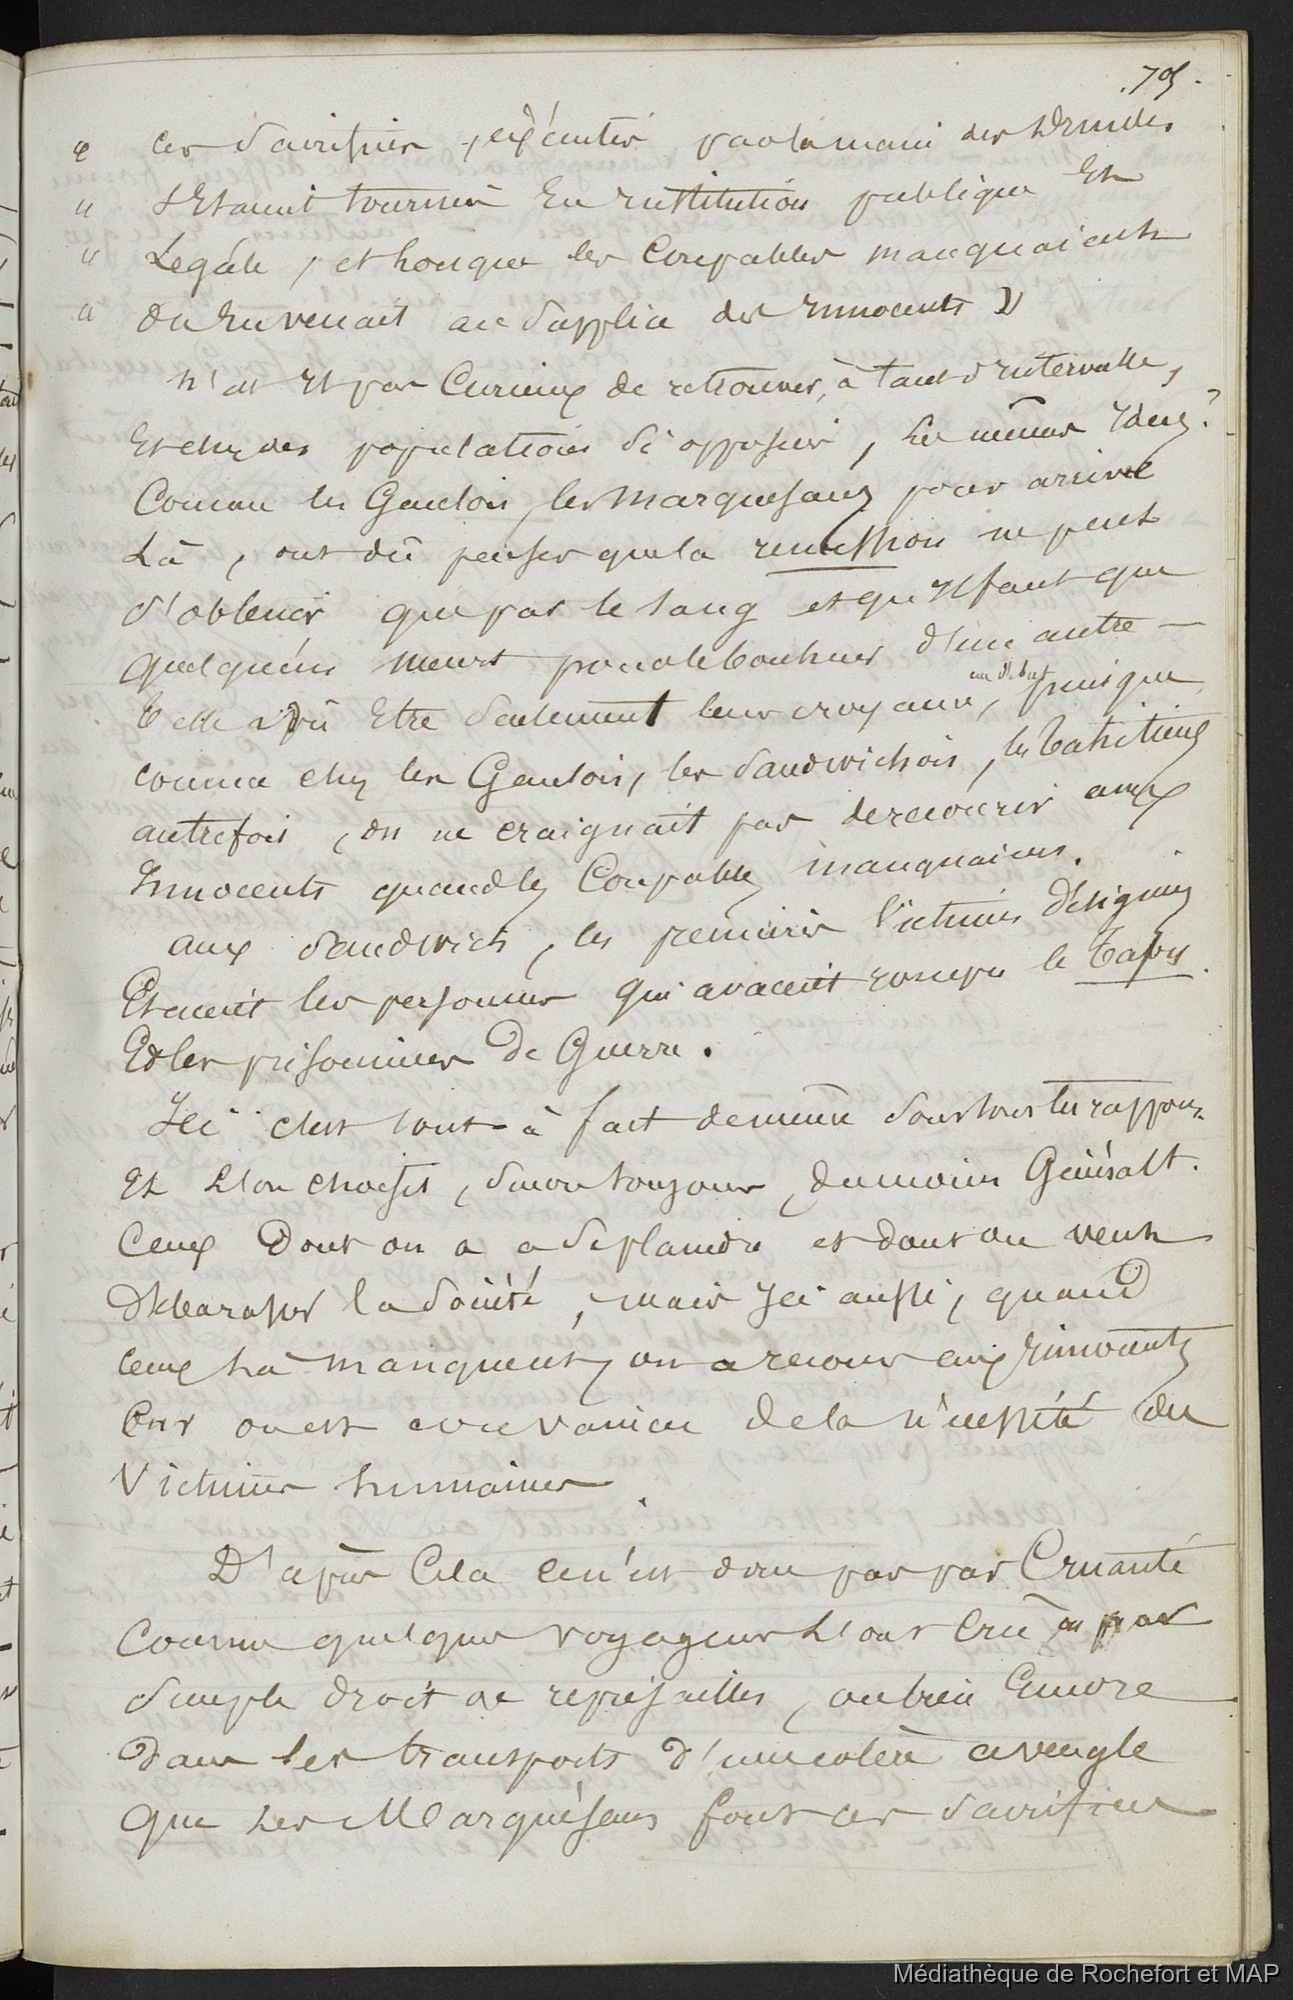 79.
" ces Sacrifices, exécutés par la main des Druides
" s'Etaient tournés En Institution publique Et
" Légale, et lorsque les Coupables manquaient
" On En venait au Supplice des Innocents »
N'est Il pas Curieux de retrouver, à tant d'Intervalle,
Et chez des populations Si opposées, les mêmes Idées?
Comme les Gaulois, les Marquesans pour arriver
Là, ont dû penser que la remission ne peut
s'obtenir que par le sang et qu'Il faut que
quelqu'un meurt pour le bonheur d'une autre —
Telle a dû Etre Seulement leur croyance, au début puisque
comme chez les Gaulois, les Sandwichois, les Tahitiens
autrefois, on ne craignait pas de recourir aux
Innocents quand les Coupables manquaient.
aux Sandwich, les premières Victimes désignées
Etaient les personnes qui avaient rompu le Tapu
Et les prisonniers De Guerre.
Ici c'est tout à fait de même sous tous les rapports
Et L'on choisit, sinon toujours, du moins Généralt.
Ceux Dont on a a Se plaindre et dont on veut
Débarasser la Société, mais Ici aussi, quand
ceux Là manquent, on a recours aux Innocents
Car on est convaincu de la nécessité des
Victimes humaines.
D'après Cela ce n'est donc pas par Cruauté
Comme quelques voyageurs L'ont Crû, ou par
Simple droit de représailles, ou bien Encore
Dans les transports d'une colère aveugle
Que Les Marquésans font ces Sacrifices
Médiathèque de Rochefort et MAP